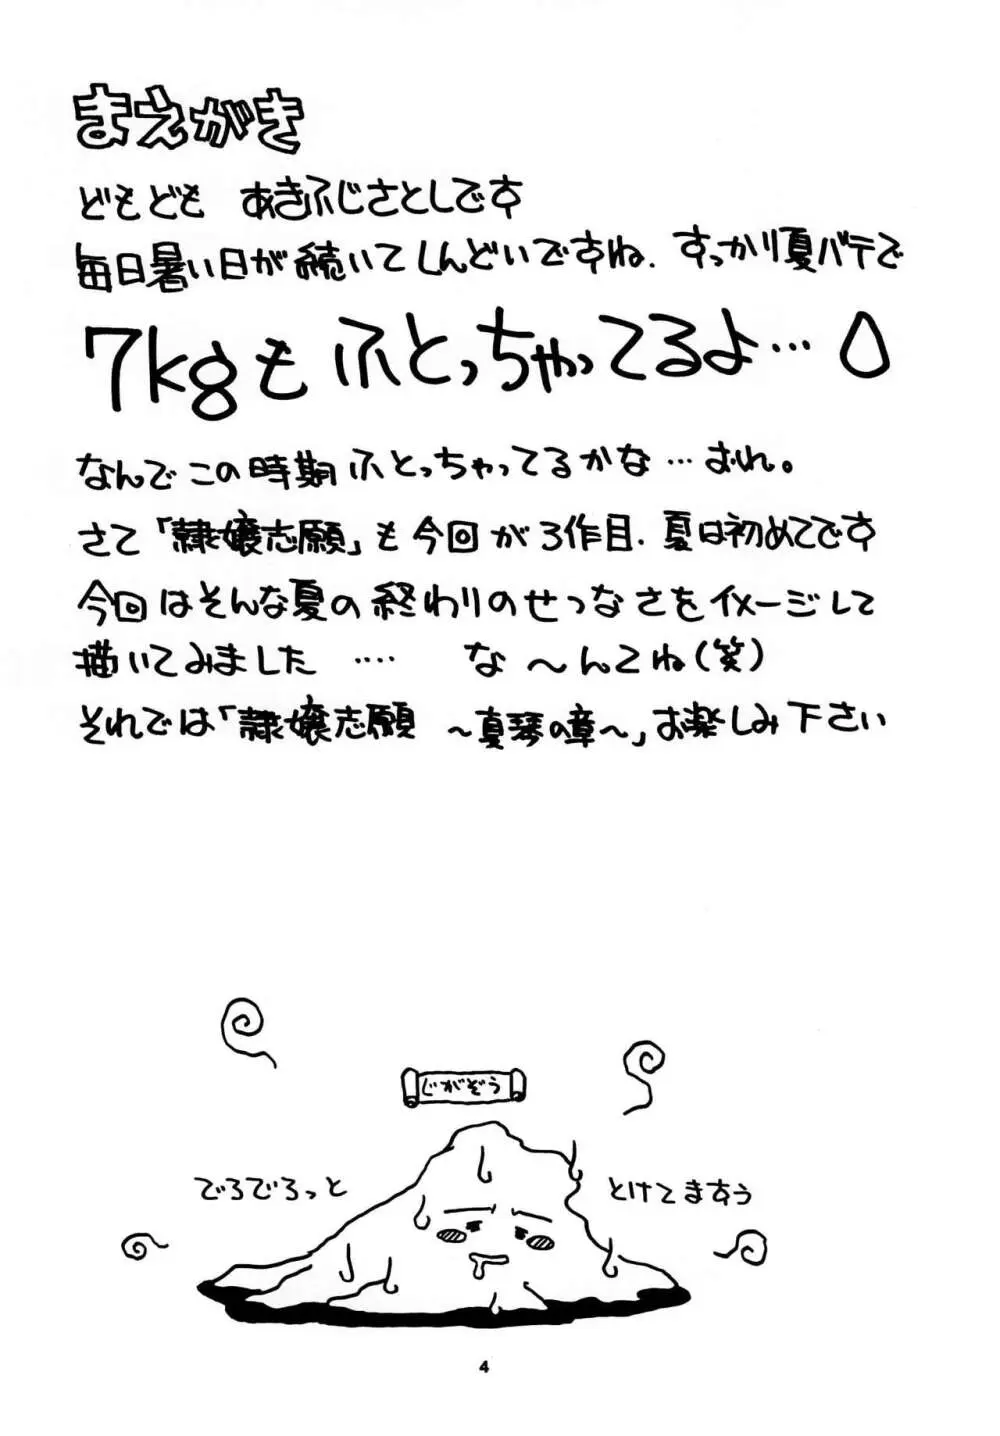 まえがき
どもども あきふじさとしです
毎日暑い日が続いてしんどいですね. すっかり夏バテで
7kgもふとっちゃってるよ…
なんでこの時期ふとっちゃってるかな…おれ。
さて「隷嬢志願」も今回が3作目. 夏は初めてです
今回はそんな夏の終わりのせつなさをイメージして
描いてみました ‥‥ な〜んてね(笑)
それでは「隷嬢志願 〜真琴の章〜」お楽しみ下さい
じがぞう
でろでろっと
とけてますぅ
4